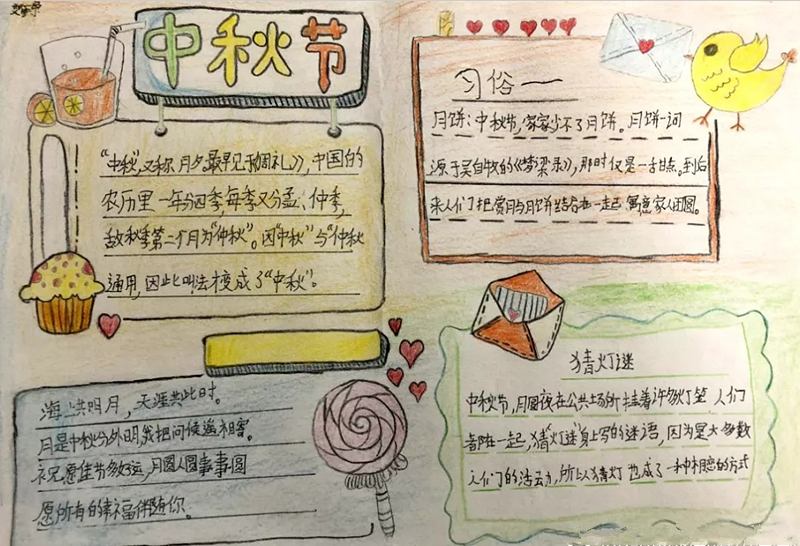 中秋节
"中秋"又称月夕,最早见于《周礼》,中国的
农历里一年分四季,每季又分孟、仲季,
故秋季第二个月为"仲秋"。因"中秋"与"仲秋
通用,因此叫法变成了"中秋"。
海上共明月,天涯共此时。
月是中秋分外明,我把问候遥相寄。
祝愿佳节多好运,月圆人圆事事圆
愿所有的幸福伴随你。
习俗一
月饼:中秋节,家家少不了月饼。月饼一词
源于吴自牧的《梦梁录》,那时仅是一种甜点。到后
来人们把赏月与月饼结合在一起,寓意家人团圆。
猜灯谜
中秋节,月圆夜在公共场所挂着许多灯笼,人们
都在一起,猜"灯谜"身上写的谜语,因为是大多数
人们的活动,所以猜灯也成了一种相恋的方式